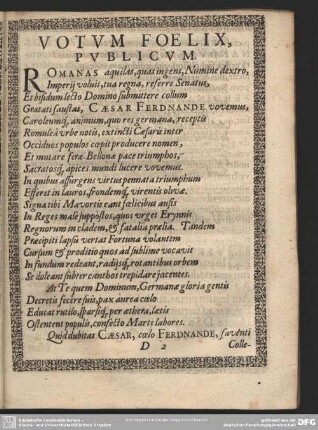 VOTVM FOELIX,
PVBLICVM.
ROMANAS aquilas, quas ingens, Numine dextro,
Imperij voluit, tua regna, referre Senatus,
Et bifidum lecto Domino submittere collum
Optati faustas, CÆSAR FERDNANDE vovemus,
Caroleumq́, animum, quo res germana, receptis
Romulea urbe notis, extincti Cæsaris inter
Occiduos populos cœpit producere nomen,
Et mutare feræ Bellonæ pace triumphos,
Sacratosq́, apices mundi lucere vovemus.
In quibus assurgens virtus pennata triumphum
Efferet in lauros, frondemq́, virentis olivæ.
Signa tibi Mavortis eant fælicibus ausis
In Reges male suppostos, quos urget Erynnis
Regnorum in cladem, & fatalia prælia. Tandem
Præcipiti lapsu vertat Fortuna volantem
Cursum & proditio quos ad sublime vocavit
In fundum redeant, radijsq́, rotantibus orbem
Se doleant subter canthos trepidare jacentes.
At Te quem Dominum, Germanæ gloria gentis
Decretis focere suis, pax aurea cœlo
Educat rutilo, sparsisq́, per æthera, lætis
Ostentent populis, confecto Marte labores.
Quid dubitas CÆSAR, cœlo FERDNANDE, faventi
D 2
Colle-